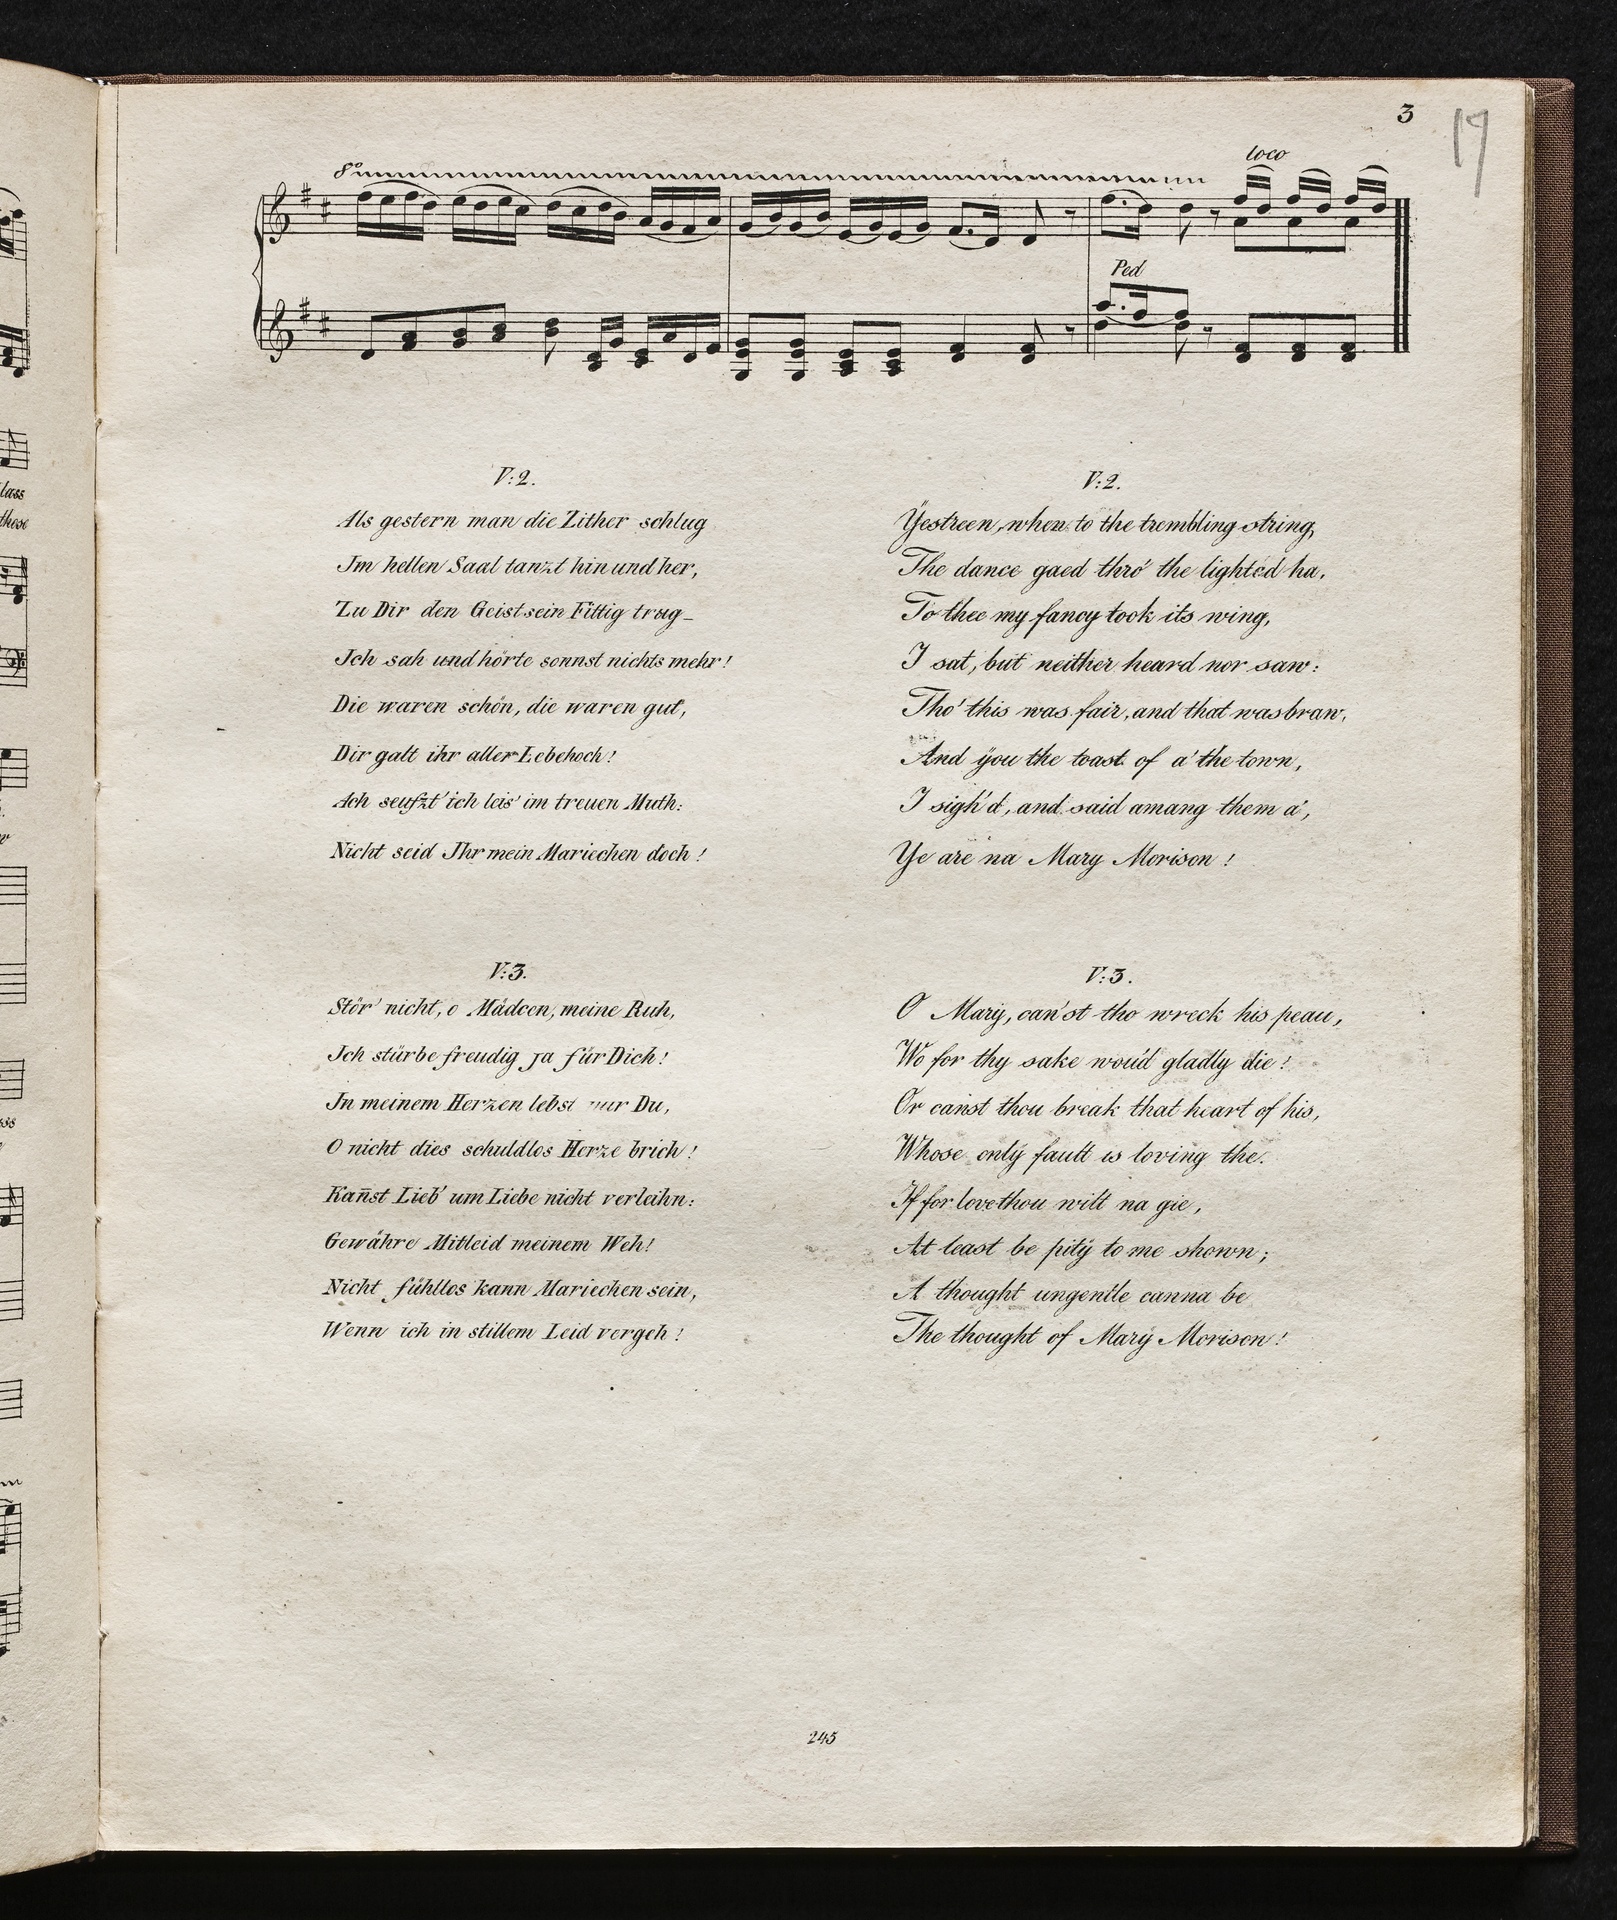 3
19
8º
loco
Ped
V:2.
Als gestern man die Zither schlug
Im hellen Saal tanzt hin und her,
Zu Dir den Geist sein Fittig trug_
Ich sah und hörte sonnst nichts mehr!
Die waren schön, die waren gut,
Dir galt ihr aller Lebehoch!
Ach seufzt' ich leis' im treuen Muth:
Nicht seid Ihr mein Mariechen doch!
V:3.
Stör' nicht, o Mädcen, meine Ruh,
Ich stürbe freudig ja für Dich!
In meinem Herzen lebst nur Du,
O nicht dies schuldlos Herze brich!
Kan̄st Lieb' um Liebe nicht verleihn:
Gewähre Mitleid meinem Weh!
Nicht fühllos kann Mariechen sein,
Wenn ich in stillem Leid vergeh!
V:2.
Yestreen, when to the trembling string,
The dance gaed thro' the lighted ha,
To thee my fancy took its wing,
I sat, but neither heard nor saw:
Tho' this was fair, and that was braw,
And you the toast of a' the town,
I sigh'd, and said amang them a',
Ye are na Mary Morison!
V:3.
O Mary, can'st tho wreck his peau,
Wo for thy sake wou'd gladly die!
Or can'st thou break that heart of his,
Whose only fault is loving the.
If for love thou wilt na gie,
At least be pity to me shown;
A thought ungentle canna be
The thought of Mary Morison!
245
lass
these